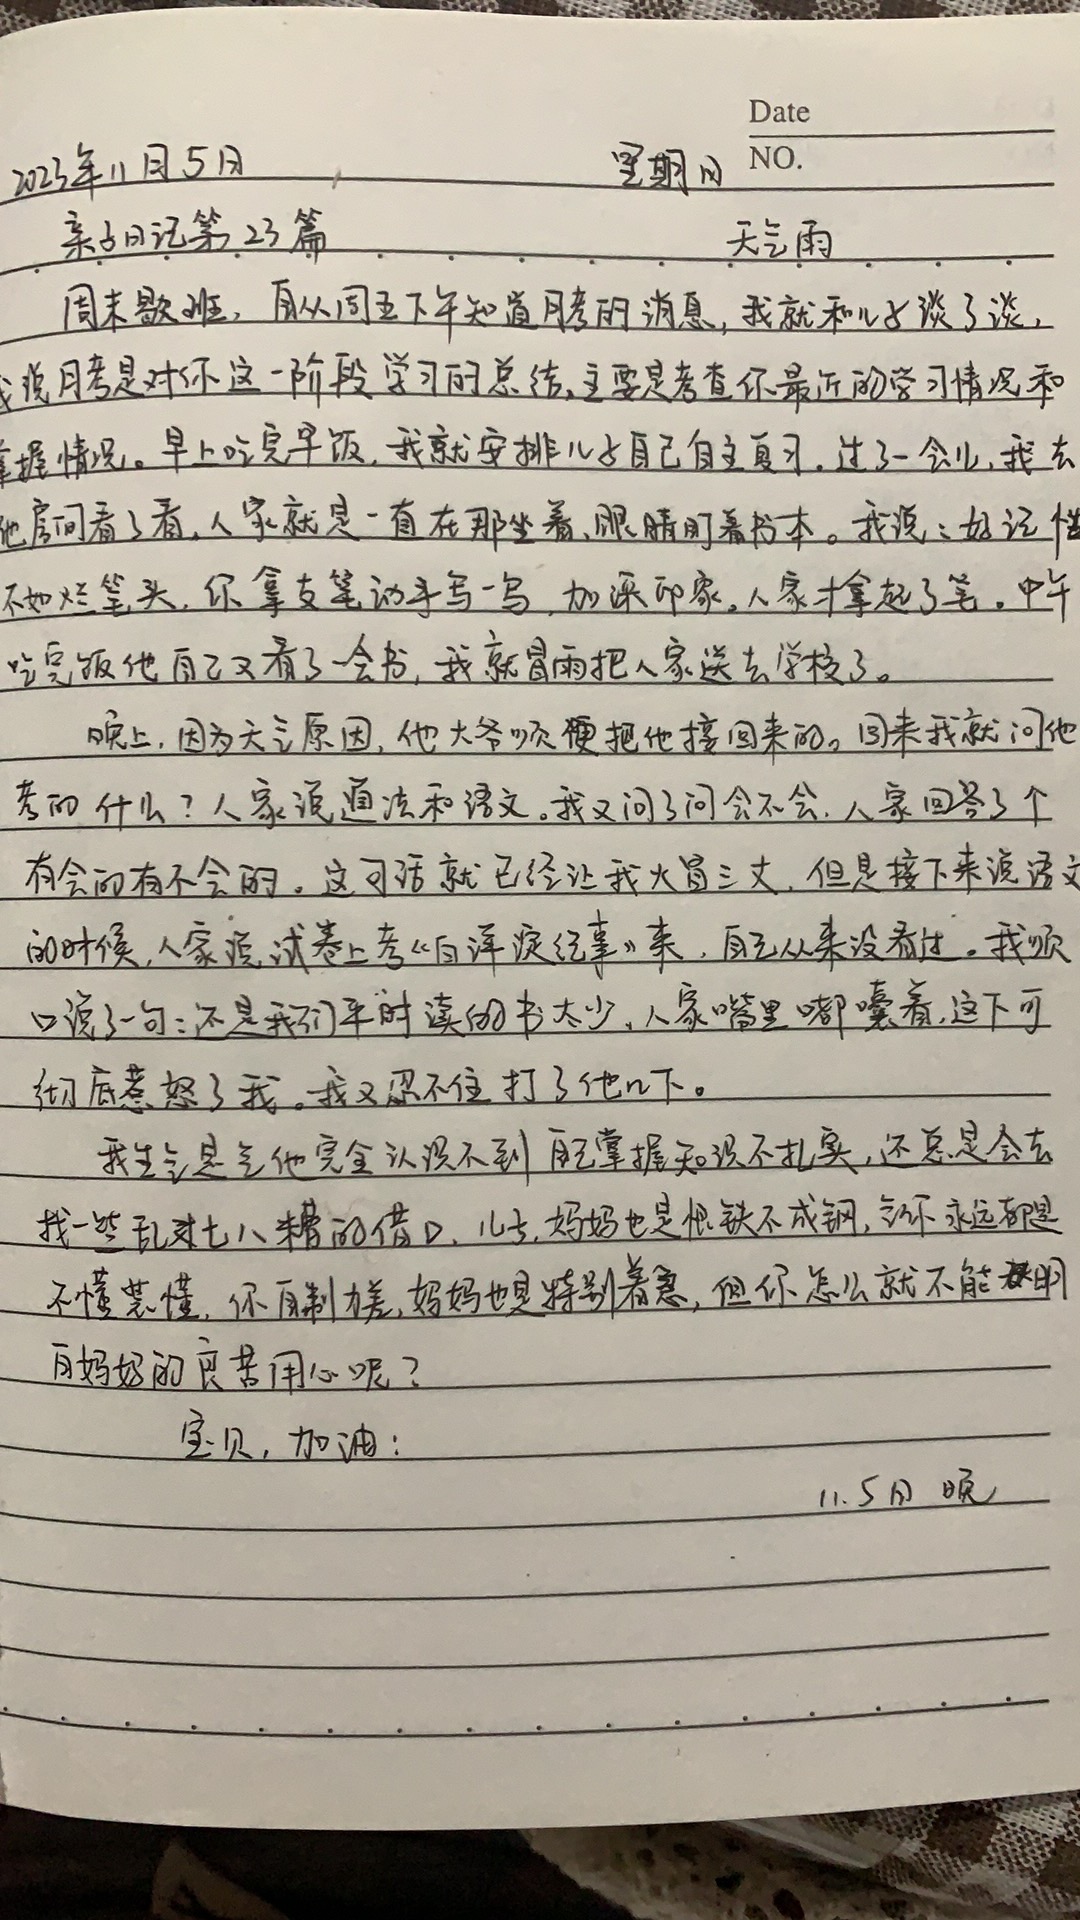 Date
NO.
2023年11月5日 星期日
亲子日记第23篇 天气雨
周末歇班，自从周五下午知道月考的消息，我就和儿子谈了谈，
我说月考是对你这一阶段学习的总结，主要是考查你最近的学习情况和
掌握情况。早上吃完早饭，我就安排儿子自己自主复习。过了一会儿，我去
他房间看了看，人家就是一直在那坐着，眼睛盯着书本。我说：好记性
不如烂笔头，你拿支笔动手写一写，加深印象。人家才拿起了笔。中午
吃完饭他自己又看了一会书，我就冒雨把人家送去学校了。
晚上，因为天气原因，他大爷顺便把他接回来的。回来我就问他
考的什么？人家说道法和语文。我又问了问会不会，人家回答了个
有会的有不会的。这句话就已经让我火冒三丈，但是接下来说语文
的时候，人家说试卷上考《白洋淀纪事》来，自己从来没看过。我顺
口说了一句：还是我们平时读的书太少，人家嘴里嘟囔着，这下可
彻底惹怒了我。我又忍不住打了他几下。
我生气是气他完全认识不到自己掌握知识不扎实，还总是会去
找一些乱七八糟的借口，儿子，妈妈也是恨铁不成钢，气你永远都是
不懂装懂，你自制力差，妈妈也是特别着急，但你怎么就不能明
白妈妈的良苦用心呢？
宝贝，加油！
11.5日 晚